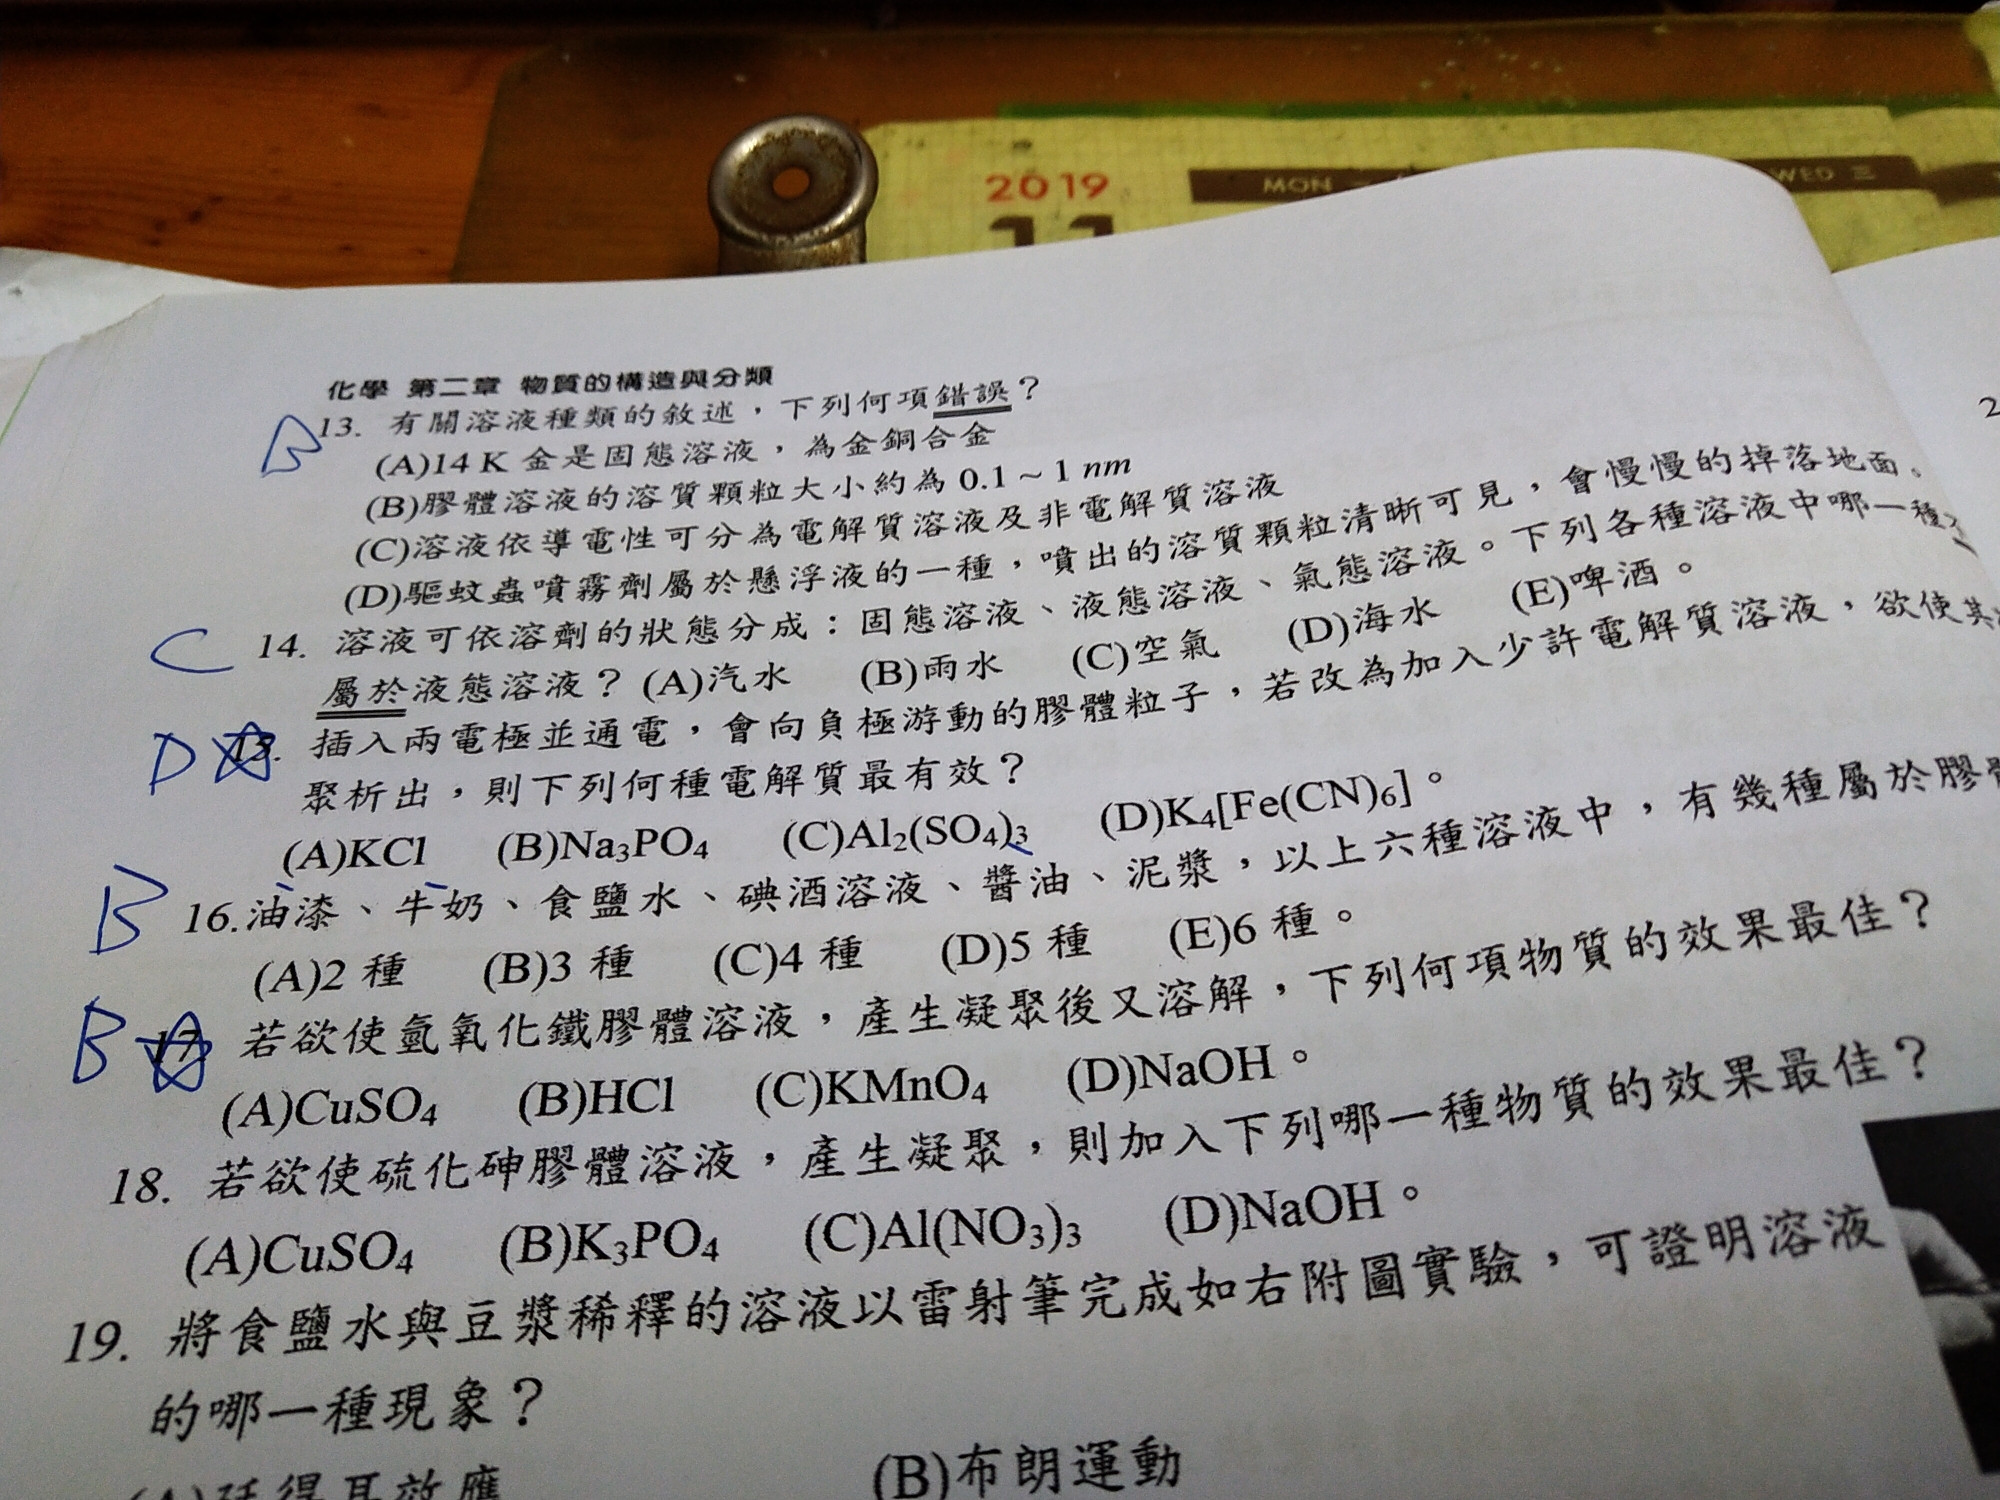 2019
MON
WED 三
11
化學 第二章 物質的構造與分類
B 13. 有關溶液種類的敘述，下列何項錯誤？
(A)14 K 金是固態溶液，為金銅合金
(B)膠體溶液的溶質顆粒大小約為 0.1 ~ 1 nm
(C)溶液依導電性可分為電解質溶液及非電解質溶液
(D)驅蚊蟲噴霧劑屬於懸浮液的一種，噴出的溶質顆粒清晰可見，會慢慢的掉落地面。
C 14. 溶液可依溶劑的狀態分成：固態溶液、液態溶液、氣態溶液。下列各種溶液中哪一種
屬於液態溶液？ (A)汽水 (B)雨水 (C)空氣 (D)海水 (E)啤酒。
D 15. 插入兩電極並通電，會向負極游動的膠體粒子，若改為加入少許電解質溶液，欲使其
聚析出，則下列何種電解質最有效？
(A)KCl (B)Na₃PO₄ (C)Al₂(SO₄)₃ (D)K₄[Fe(CN)₆]。
B 16.油漆、牛奶、食鹽水、碘酒溶液、醬油、泥漿，以上六種溶液中，有幾種屬於膠
(A)2 種 (B)3 種 (C)4 種 (D)5 種 (E)6 種。
B 17. 若欲使氫氧化鐵膠體溶液，產生凝聚後又溶解，下列何項物質的效果最佳？
(A)CuSO₄ (B)HCl (C)KMnO₄ (D)NaOH。
18. 若欲使硫化砷膠體溶液，產生凝聚，則加入下列哪一種物質的效果最佳？
(A)CuSO₄ (B)K₃PO₄ (C)Al(NO₃)₃ (D)NaOH。
19. 將食鹽水與豆漿稀釋的溶液以雷射筆完成如右附圖實驗，可證明溶液
的哪一種現象？
(A)廷得耳效應 (B)布朗運動
2